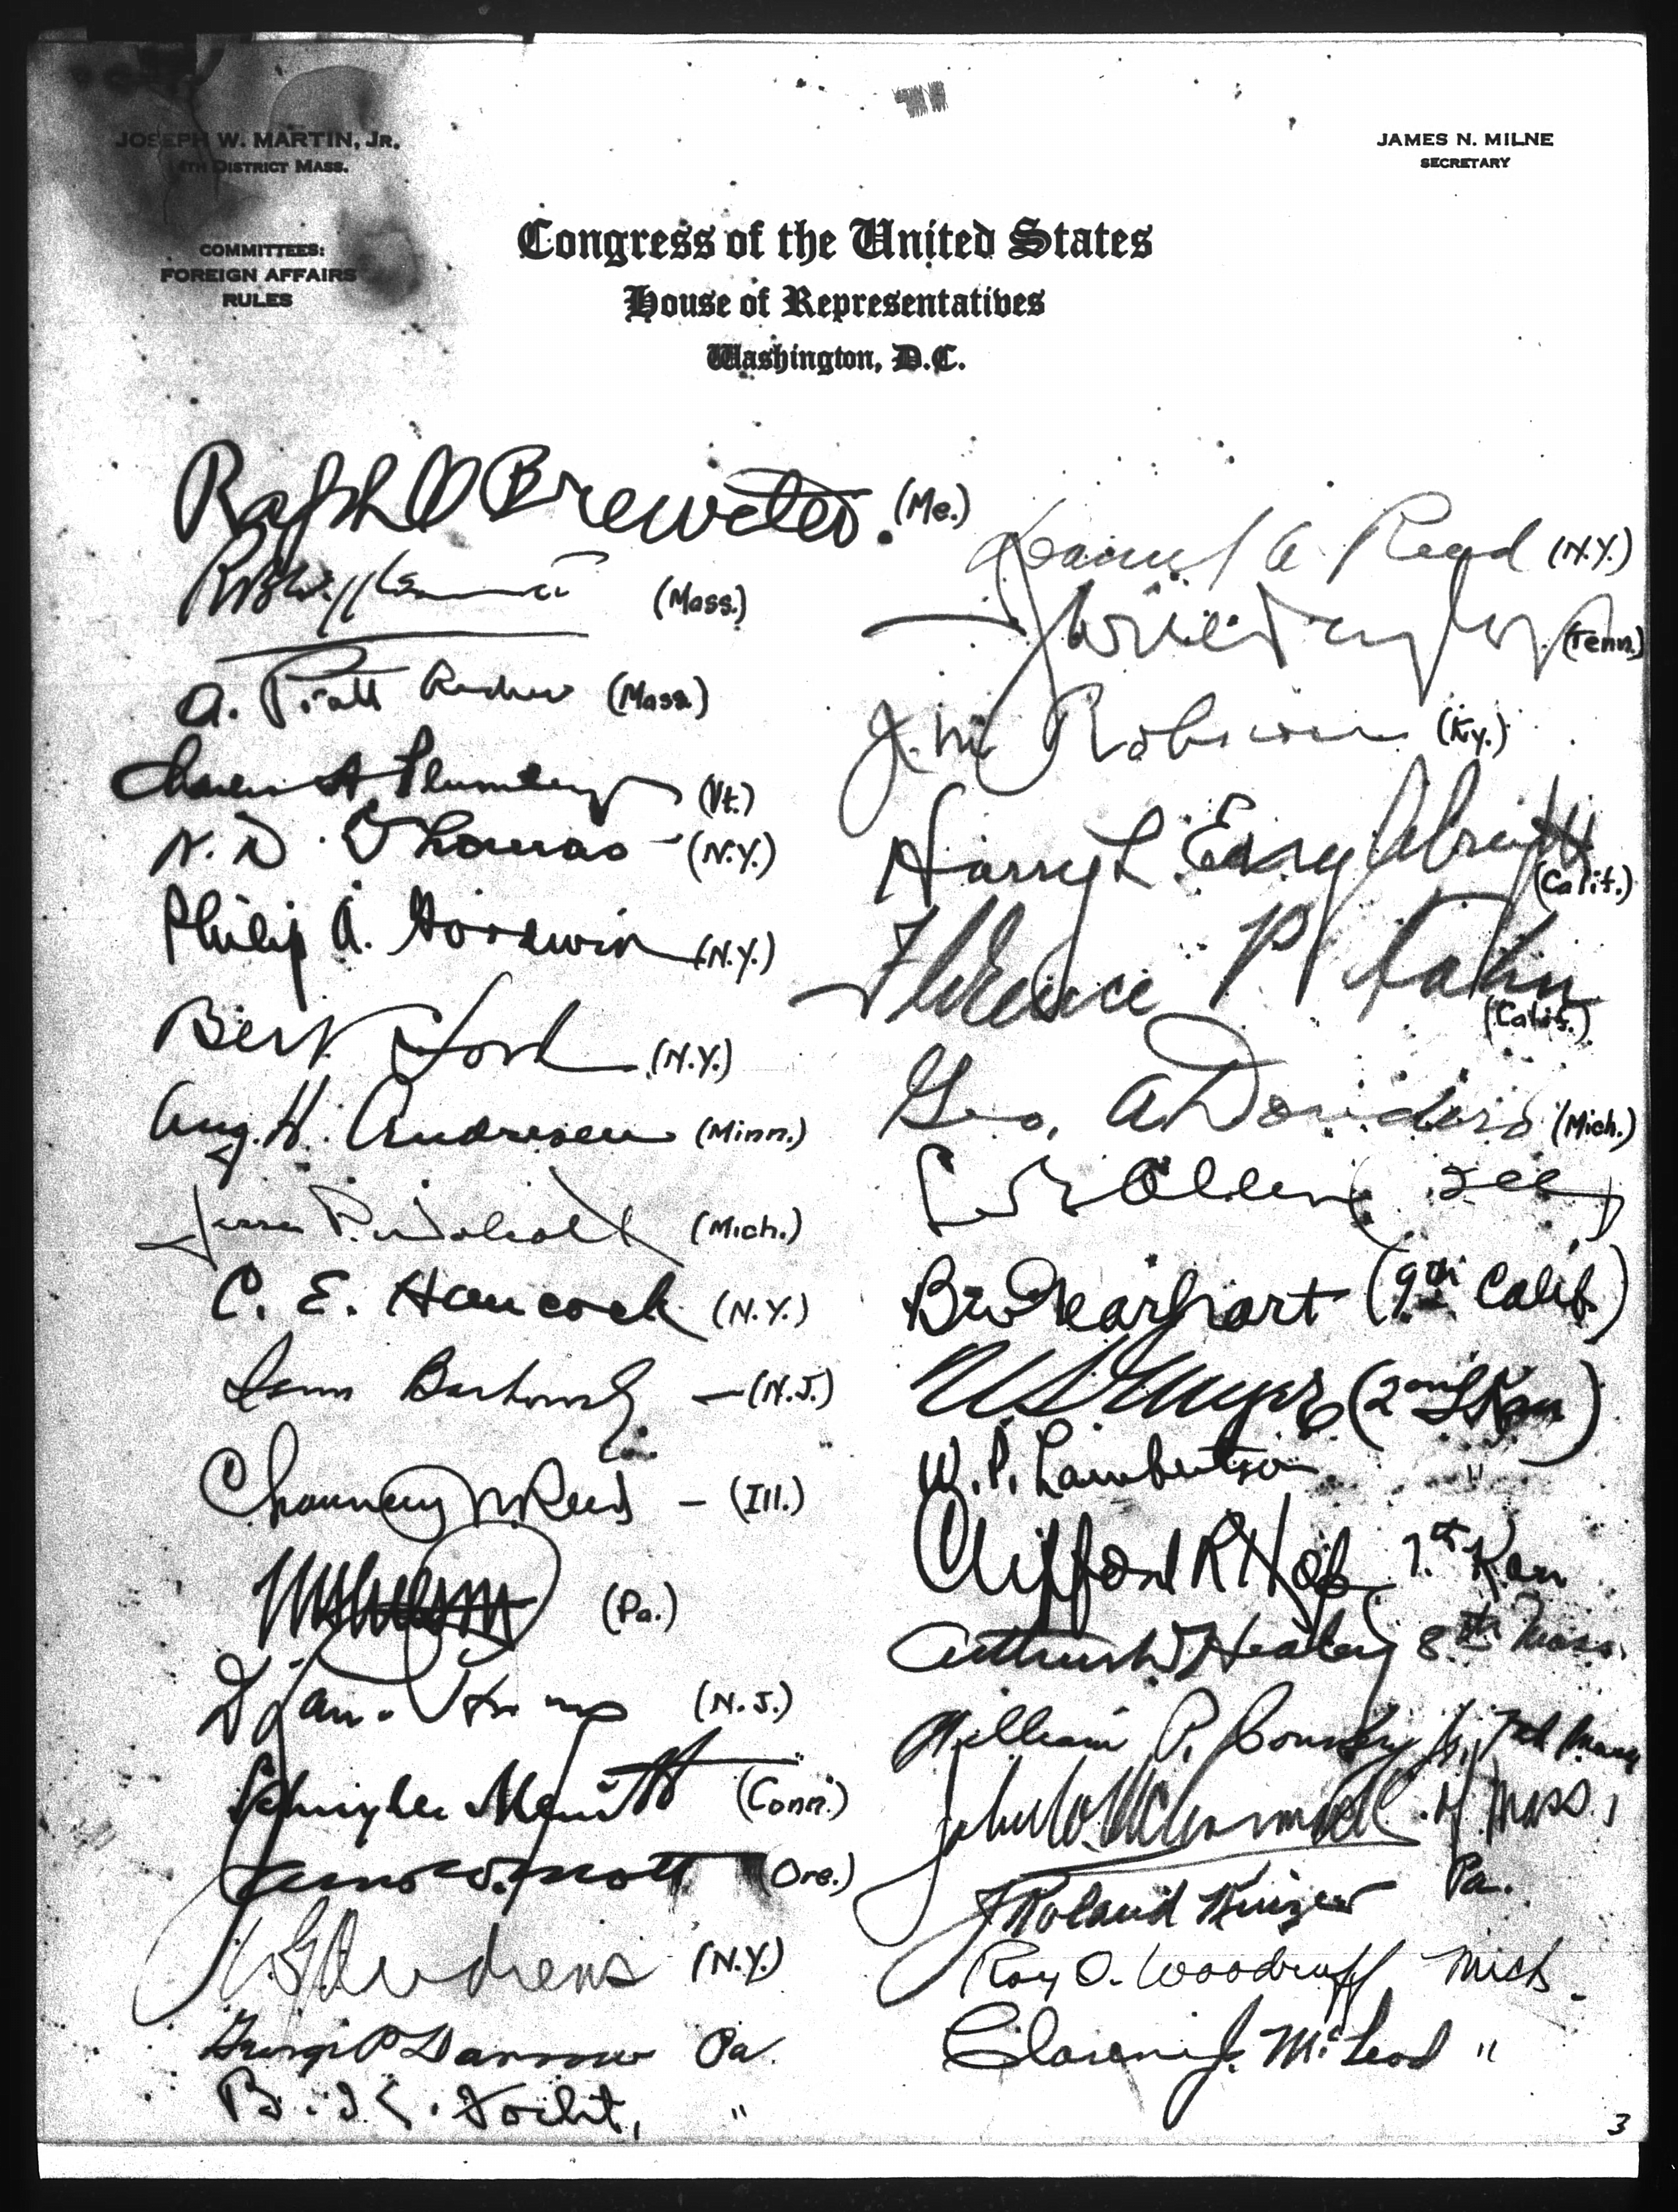 JOSEPH W. MARTIN, JR.
4TH DISTRICT MASS.
COMMITTEES:
FOREIGN AFFAIRS
RULES
JAMES N. MILNE
SECRETARY
Congress of the United States
House of Representatives
Washington, D.C.
Ralph O Brewster. (Me.)
(Mass.)
A. Piatt Andrew (Mass.)
Charles A Plumley (Vt.)
N.Y.)
Philip A. Goodwin (N.Y.)
Bert Lord (N.Y.)
Aug. H. Andresen (Minn.)
Jesse P. Wolcott (Mich.)
C. E. Hancock (N.Y.)
(N.J.)
Chauncey W. Reed - (Ill.)
(Pa.)
(N.J.)
Schuyler Merritt (Conn.)
James W. Mott (Ore.)
W G Andrews (N.Y.)
George P Darrow Pa.
B. K. Focht, "
Daniel A. Reed (N.Y.)
(Tenn.)
J. M. Robsion (Ky.)
Harry L. Englebright (Calif.)
Florence P Kahn (Calif.)
Geo. A Dondero (Mich.)
Allen (Ill)
B W Gearhart (9th Calif.)
(2nd Kan)
W. P. Lambertson "
Clifford R Hope 7th Kan
Arthur D Healey 8th Mass.
William P. Connery Jr. 7th Mass
John W. McCormack Mass.
J Roland Kinzer Pa.
Roy O. Woodruff Mich.
Clarence J. McLeod "
3